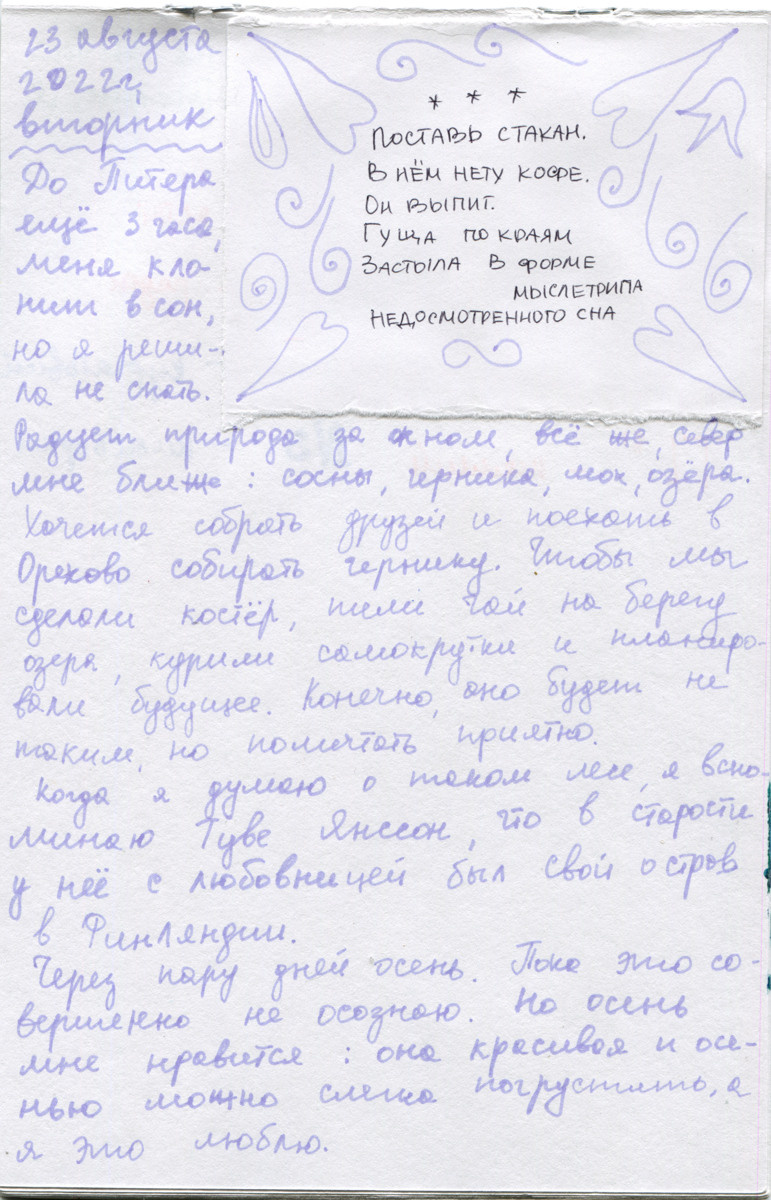 23 августа
2022г,
вторник
До Питера
ещё 3 часа,
меня кло-
нит в сон,
но я реши-
ла не спать.
* * *
Поставь стакан.
В нём нету кофе.
Он выпит.
Гуща по краям
Застыла в форме
мыслетрипа
недосмотренного сна
Радует природа за окном, всё же, север
мне ближе: сосны, черника, мох, озёра.
Хочется собрать друзей и поехать в
Орехово собирать чернику. Чтобы мы
сделали костёр, пили чай на берегу
озера, курили самокрутки и планиро-
вали будущее. Конечно, оно будет не
таким, но помечтать приятно.
Когда я думаю о таком лесе, я вспо-
минаю Туве Янссон, что в старости
у неё с любовницей был свой остров
в Финляндии.
Через пару дней осень. Пока это со-
вершенно не осознаю. Но осень
мне нравится: она красивая и осе-
нью можно слегка погрустить, а
я это люблю.